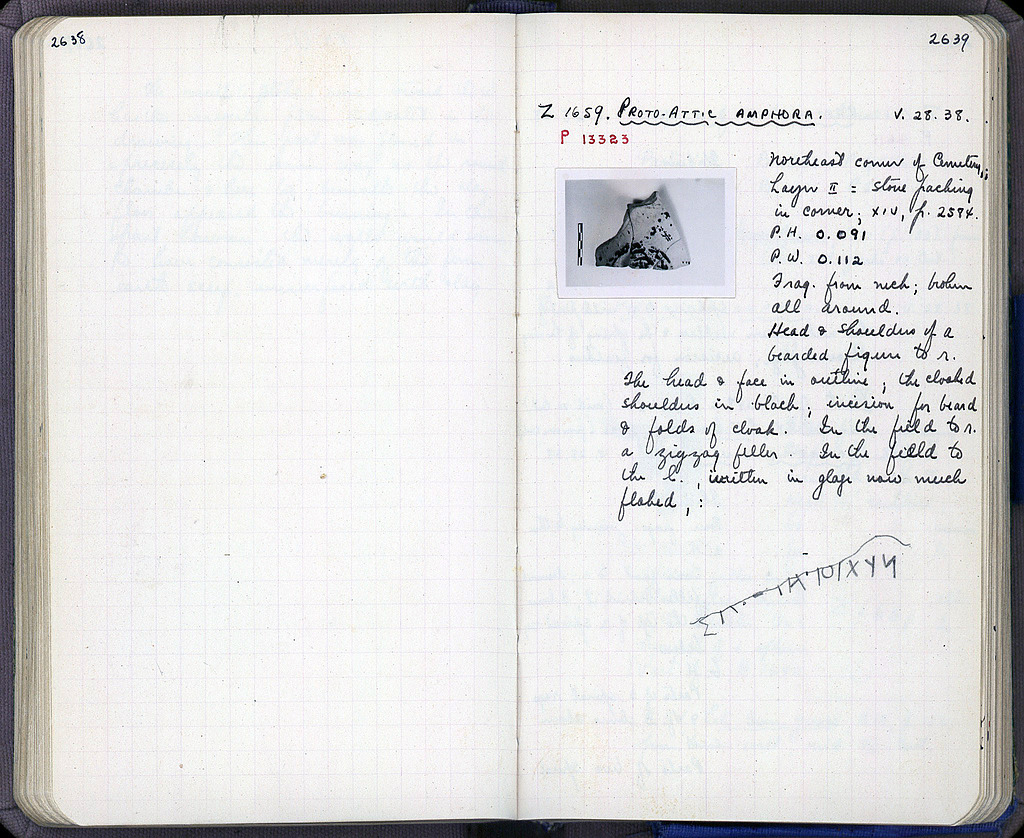 2638
2639
Z 1659. PROTO-ATTIC AMPHORA. V. 28. 38.
P 13323
Northeast corner of Cemetery,
Layer II = stone packing
in corner; XIV, p. 2594.
P.H. 0.091
P.W. 0.112
Frag. from neck; broken
all around.
Head & shoulders of a
bearded figure to r.
The head & face in outline; the cloaked
shoulders in black; incision for beard
& folds of cloak. In the field to r.
a zigzag filler. In the field to
the l., written in glaze now much
flaked, :